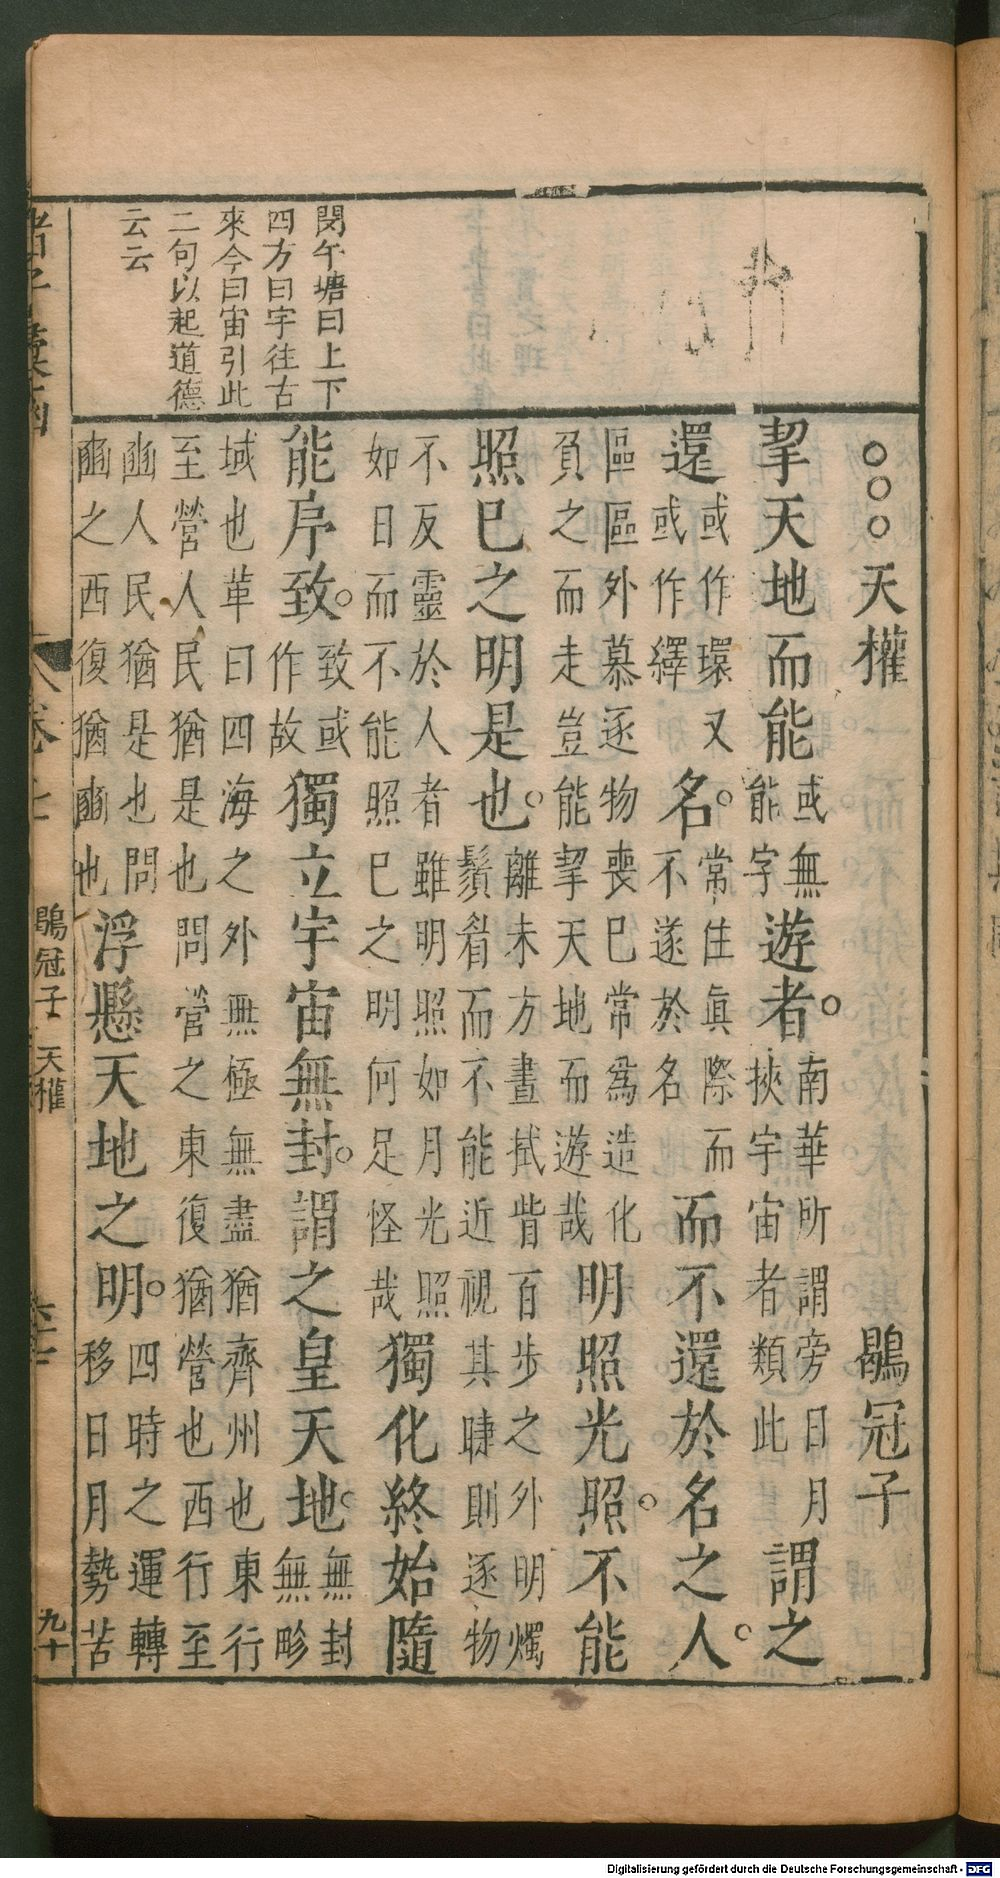 閔午塘曰上下
四方曰宇往古
來今曰宙引此
二句以起道德
云云
○○○天權 鶡冠子
挈天地而能或無能字遊者。南華所謂旁日月挾宇宙者類此謂之
還或作環又或作繹名。常住眞際而不遂於名而不還於名之人。
區區外慕逐物喪已常爲造化負之而走豈能挈天地而遊哉明照光照。不能
照已之明是也。離未方晝拭眥百步之外明燭鬚眉而不能近視其睫則逐物
不反靈於人者雖明照如月光照如日而不能照已之明何足怪哉獨化終始隨
能序致。致或作故獨立宇宙無封。謂之皇天地。無封無畛
域也革曰四海之外無極無盡猶齊州也東行至營人民猶是也問營之東復猶營也西行至
豳人民猶是也問豳之西復猶豳也浮懸天地之明。四時之運轉移日月勢苦
卷七
鶡冠子 天權
九十
Digitalisierung gefördert durch die Deutsche Forschungsgemeinschaft - DFG